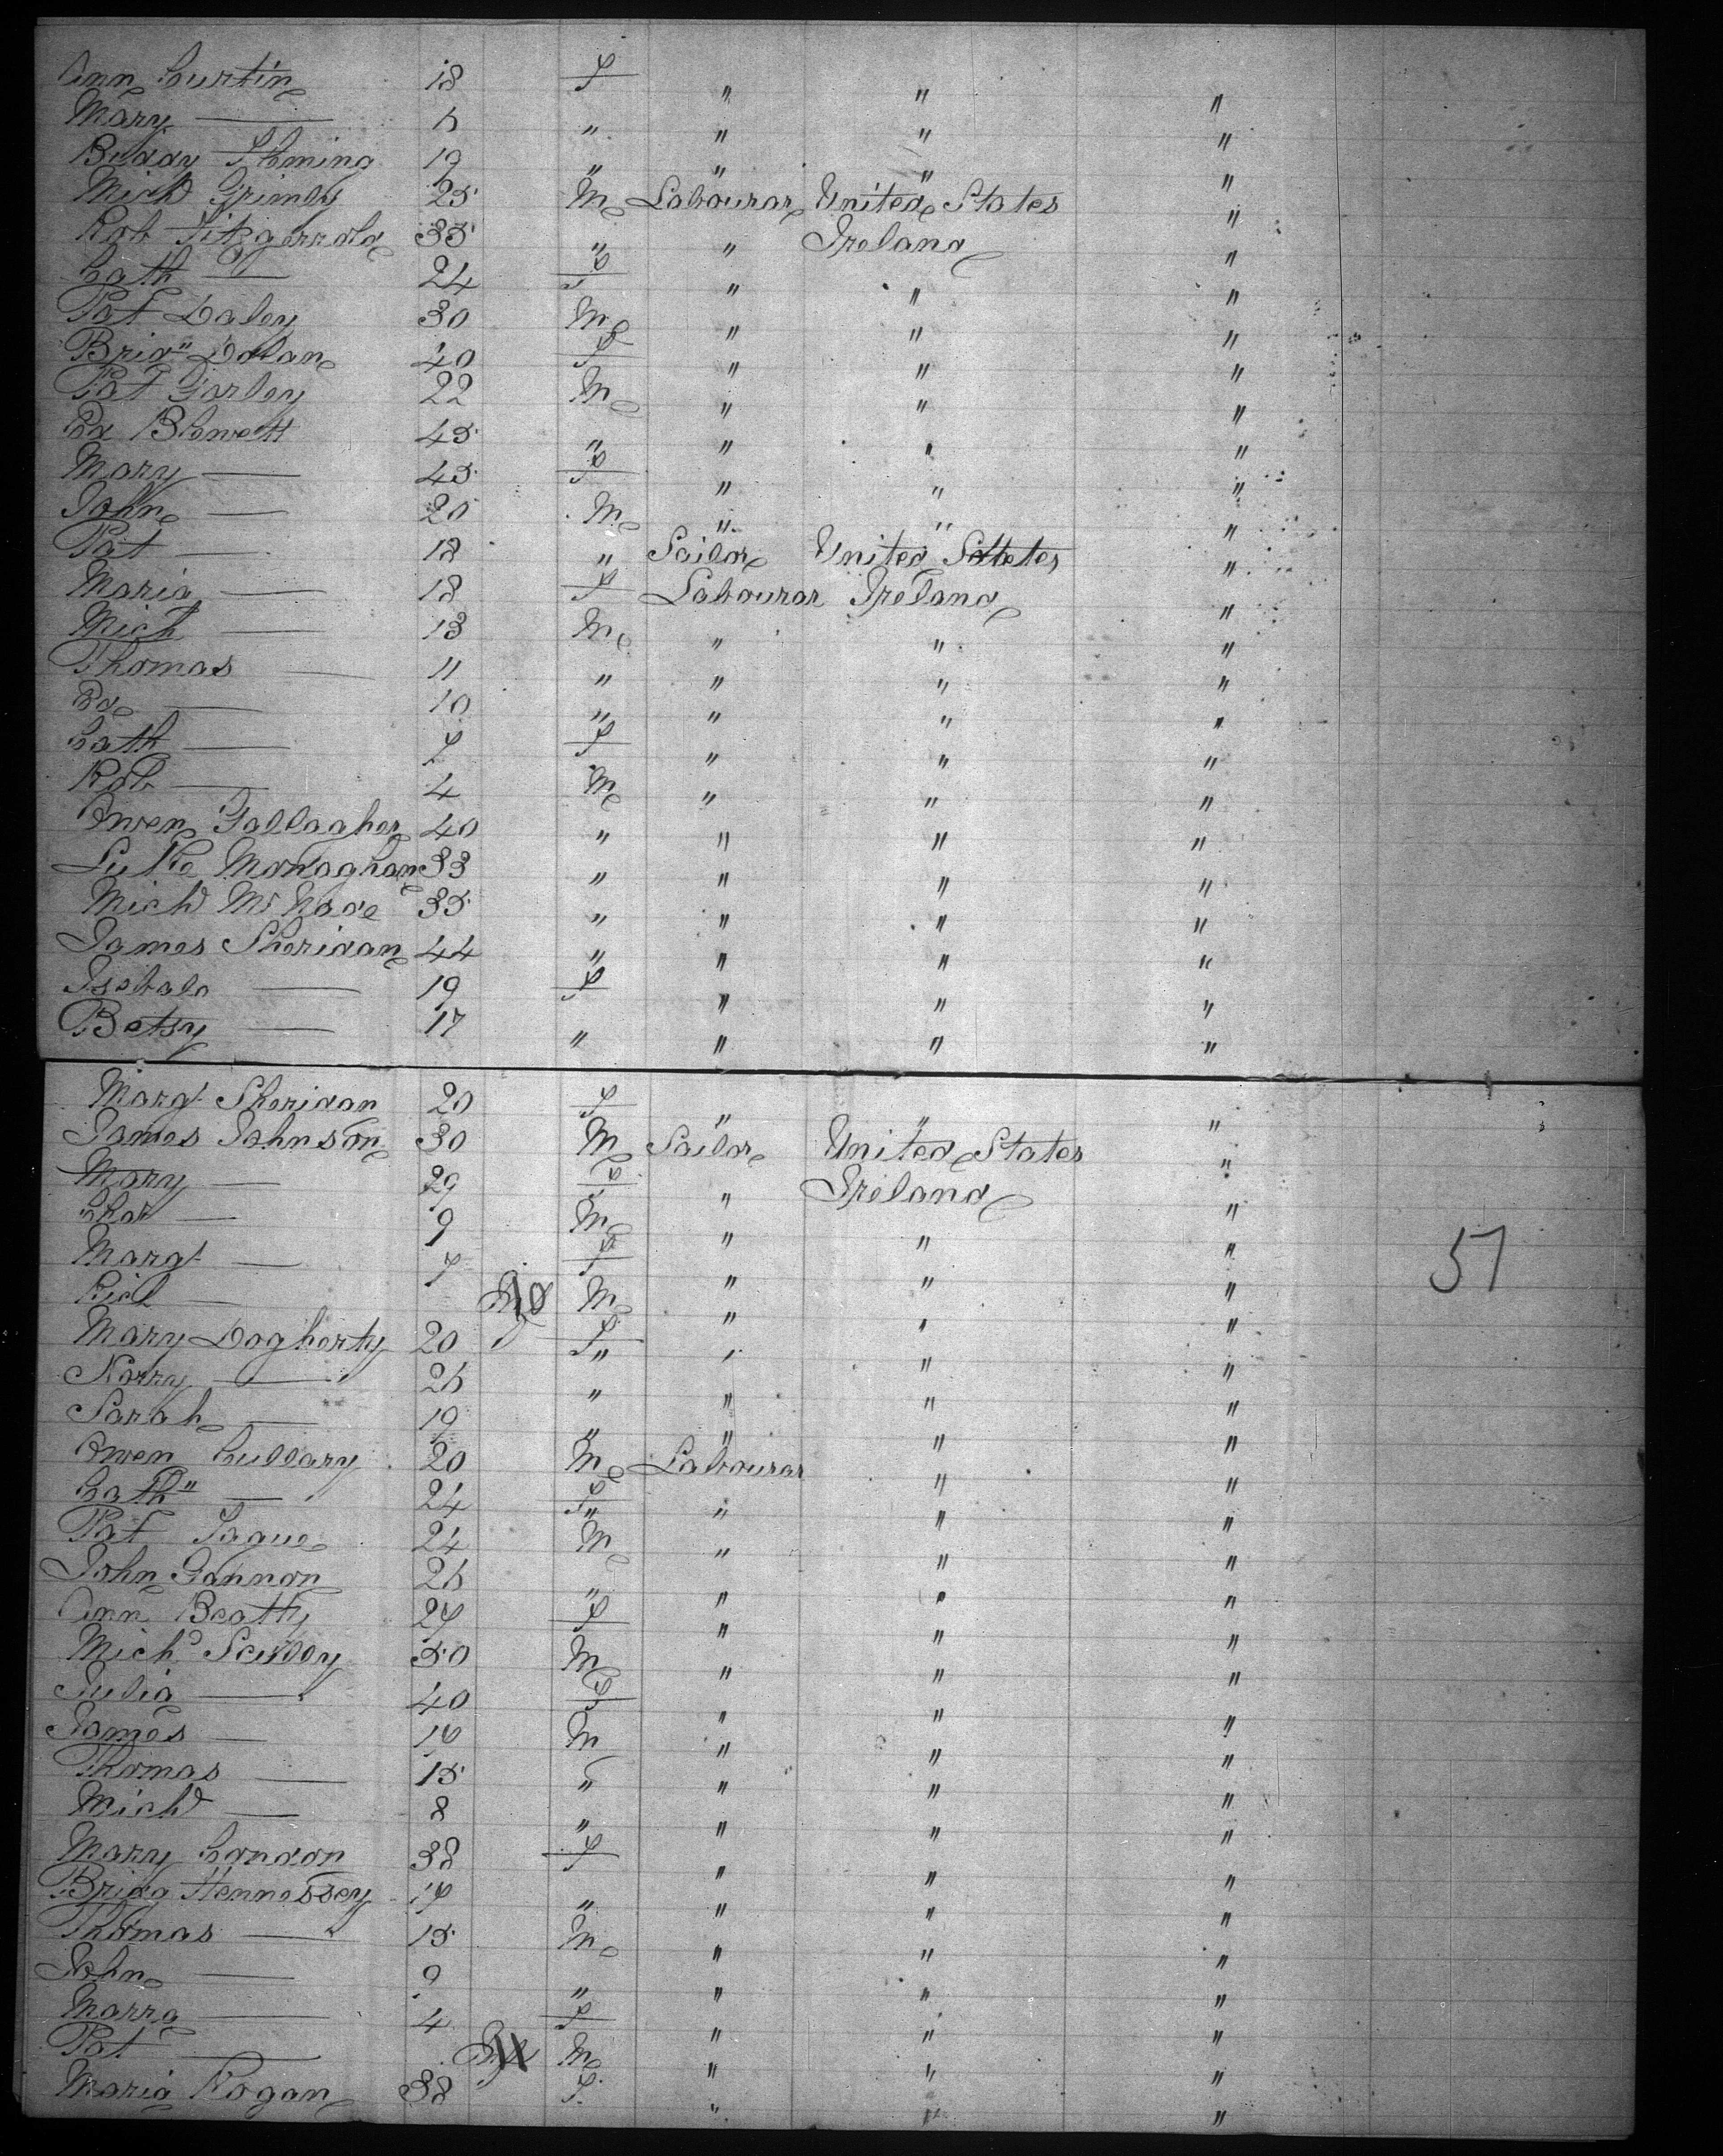 Ann Curtin 18 F " " "
Mary — 6 " " " "
Biddy Fleming 19 " " " "
Mich'd 25 M Labourer United States "
Rob Fitzgerrald 35 " " Ireland "
Cath — 24 F " " "
Pat Daley 30 M " " "
Brid" Dolan 40 F " " "
Pat Farley 22 M " " "
Ed Blewett 45 " " " "
Mary — 45 F " " "
John — 20 M " " "
Pat — 18 " Sailor United States "
Maria — 18 F Labourer Ireland "
Mich — 13 M " " "
Thomas — 11 " " " "
Ed — 10 " " " "
Cath — 7 F " " "
Rob — 4 M " " "
Owen Gallagher 40 " " " "
Luke Monaghan 33 " " " "
Mich'd 35 " " " "
James Sheridan 44 " " " "
Isabala — 19 F " " "
Betsy — 17 " " " "
Marg't Sheridan 20 F " " "
James Johnson 30 M Sailor United States "
Mary — 29 F " Ireland "
Chas — 9 M " " "
Marg't — 7 F " " "
Rich — M " " "
Mary Dogherty 20 F " " "
Norry — 26 " " " "
Sarah — 19 " " " "
Owen Cullary 20 M Labourer " "
Cath" — 24 F " " "
Pat Tague 24 M " " "
John Gannon 26 " " " "
Ann Beatty 27 F " " "
Mich'd Scully 50 M " " "
Julia — 40 F " " "
James — 16 M " " "
Thomas — 15 " " " "
Mich'd — 8 " " " "
Mary Condon 38 F " " "
Bridg Hennessey 17 " " " "
Thomas — 15 M " " "
John — 9 " " " "
Marrg — 4 F " " "
Pat — M " " "
Maria Hogan 38 F " " "
51